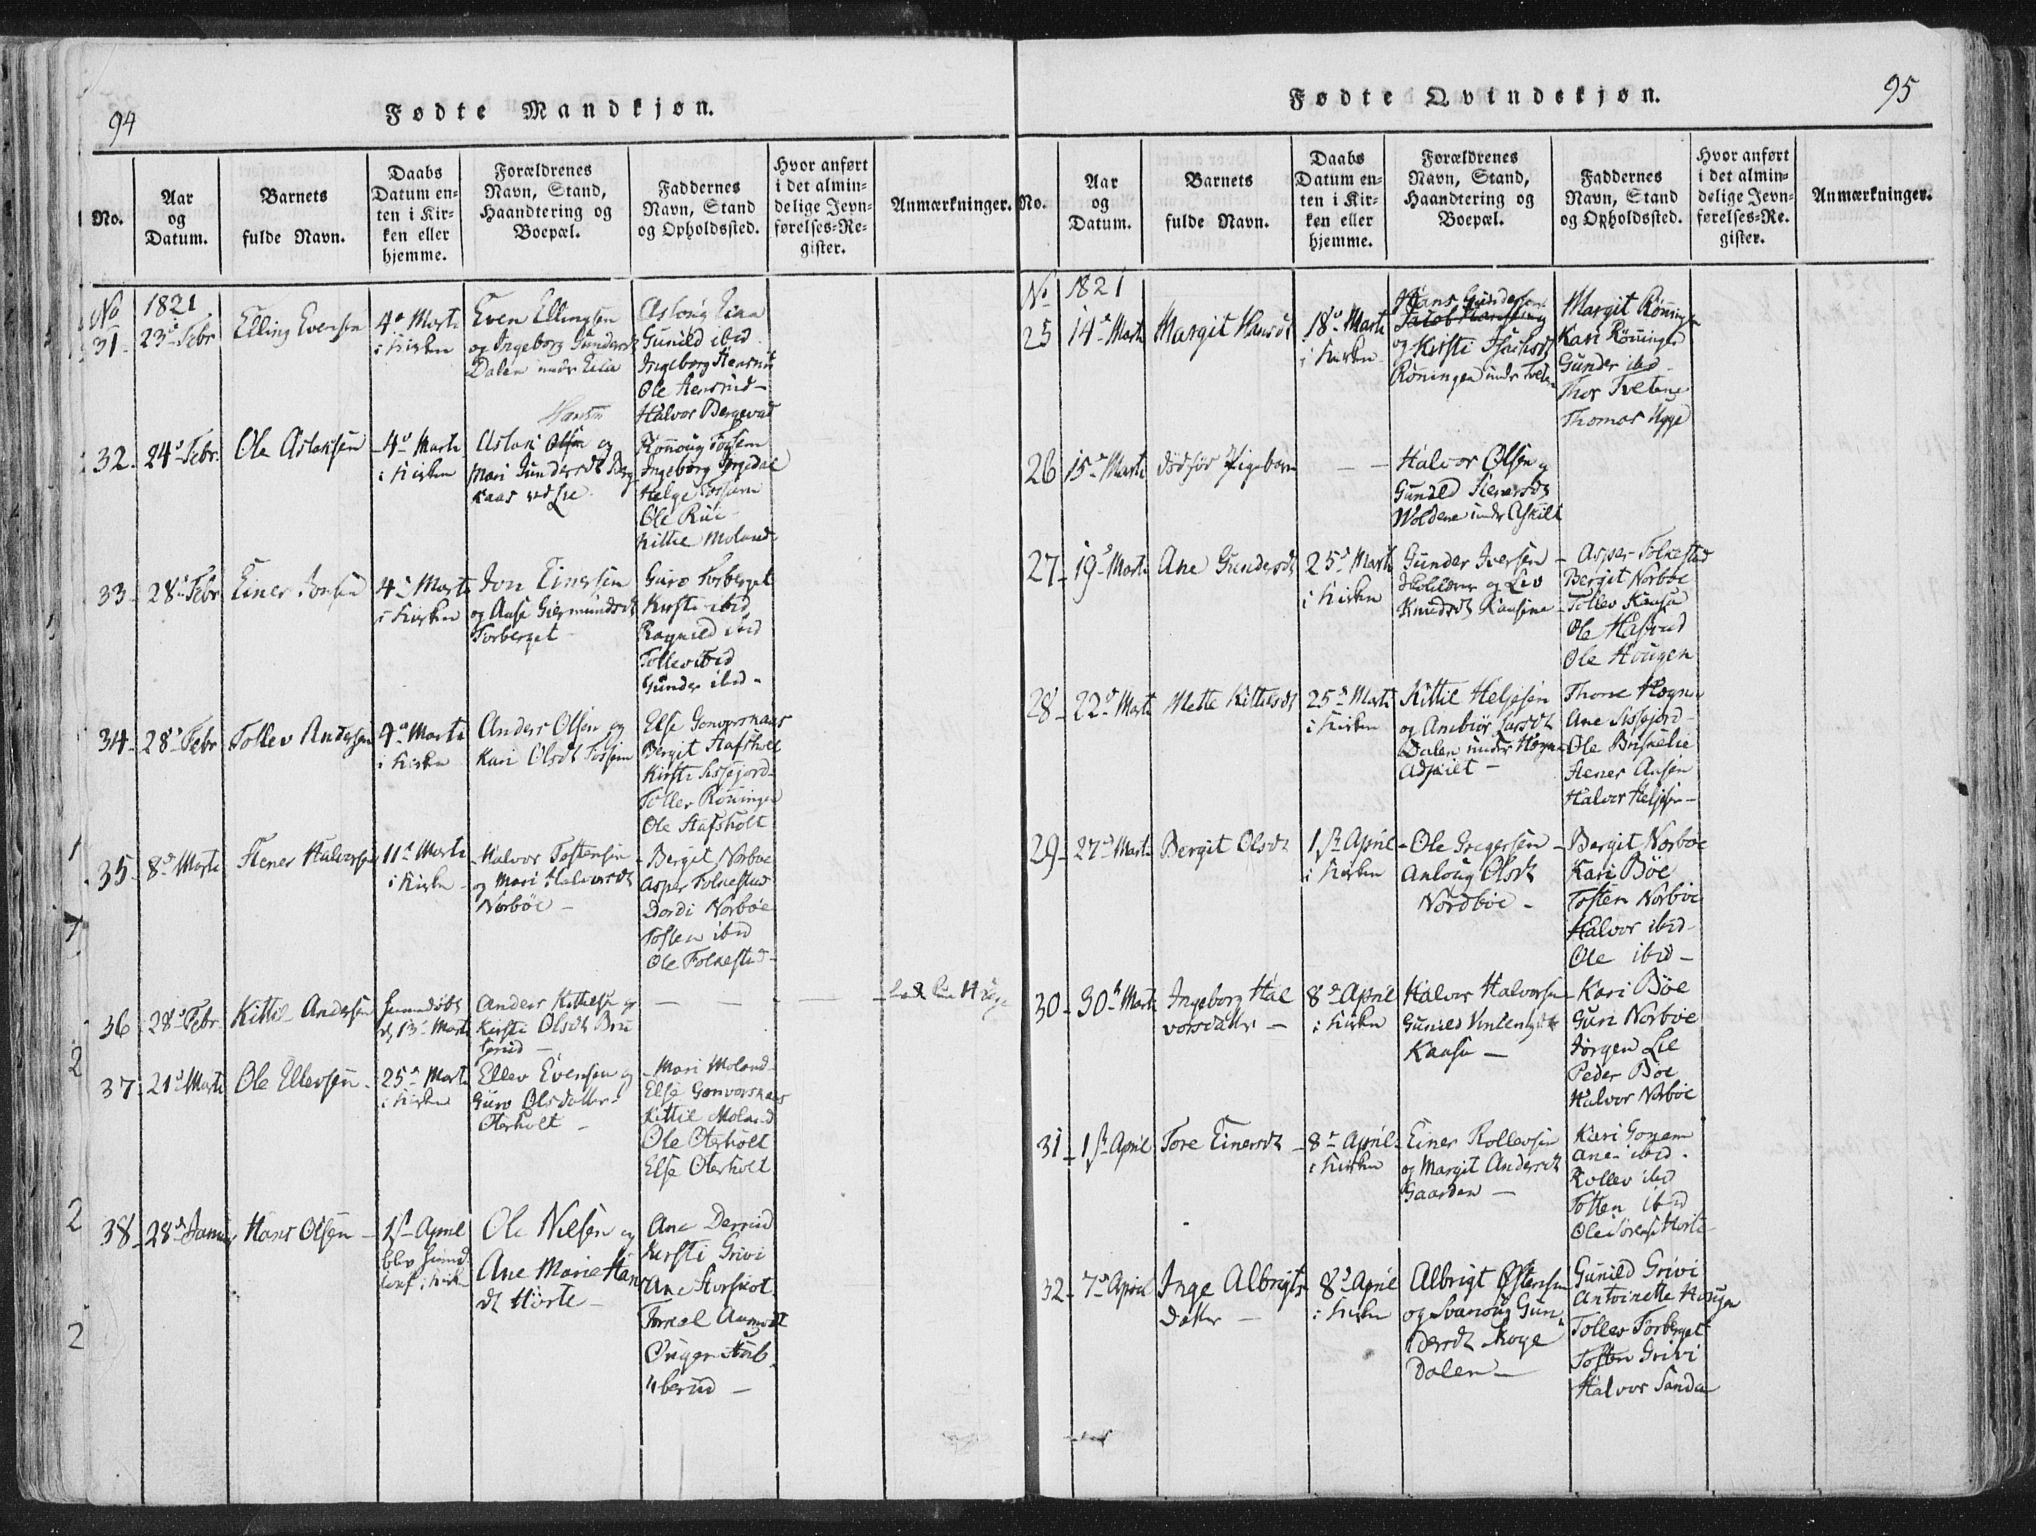 94
Fødte Mandkjøn.
No.
Aar
og
Datum.
Barnets
fulde Navn.
Daabs
Datum en-
ten i Kir-
ken eller
hjemme.
Forældrenes
Navn, Stand,
Haandtering og
Boepæl.
Faddernes
Navn, Stand
og Opholdssted.
Hvor anført
i det almin-
delige Jevn-
førelses-Re-
gister.
Anmærkninger.
No 1821
31 23d Febr Elling Evensen
4d Marti
i Kirken
Even Ellingsen
og Ingeborg Gundersdt
Dalen under
Asloug
Gunild ibid
Ingeborg
Ole
Halvor Bergevad
32. 24d Febr. Ole Aslaksen
4d Marti
i Kirken
Hansen
Aslak Olsen og
Mari Gundersdt
kaas ved Lie
Ronnoug Fossem
Ingeborg
Helge Fossum
Ole Rue
Kittil Moland
33 28d Febr Einer Jonsen
4d Marti
i Kirken
Jon Einersen
og Aase Giermundsdt
Forberget
Guro Forberget
Kirsti ibid
Ragnild ibid
Tollev ibid
Gunder ibid
34 28d Febr Tollev Andersen
4d Marti
i Kirken
Anders Olsen og
Kari Olsdt Fossem
Else Gonvorskaas
Bergit Stafsholt
Kirsti Sissejord
Tollev Roningen
Ole Stafsholt
35 8d Marti Stener Halvorsen
11d Marti
i Kirken
Halvor Tostensen
og Mari Halvorsdt
Norbøe
Bergit Norboe
Asper Folkestad
Dordi Norbøe
Tosten ibid
Ole Folkestad
36 28d Febr Kittil Andersen
hjemmedøbt
d 13d Marti
Anders Kittilsen og
Kirsti Olsdt Bru
37 21d Marti Ole Ellevsen
25d Marti
i Kirken
Ellev Evensen og
Guro Olsdatter
Oterholt
Mari Moland
Else Gonvorskaas
Kittil Moland
Ole Oterholt
Else Oterholt
38 28d Hans Olsen
1st April
blev hjemd
conf i Kirken
Ole Nilsen og
Ane Marie Hans
dt Horte
Ane
Kirsti Grivi
Ane
95
Fødte Qvindekjøn.
No.
Aar
og
Datum.
Barnets
fulde Navn.
Daabs
Datum en-
ten i Kir-
ken eller
hjemme.
Forældrenes
Navn, Stand,
Haandtering og
Boepæl.
Faddernes
Navn, Stand
og Opholdssted.
Hvor anført
i det almin-
delige Jevn-
førelses-Re-
gister.
Anmærkninger.
No 1821
25 14d Marti Margit Hansdt
18d Marti
i Kirken
Hans Gundersen
og Kirsti
Roningen under Tveten
Margit Rønningen
Kari Rønningen
Gunder ibid
Thor Tvetene
Thomas Hyge
26 15d Marti dødfør Pigebarn
Halvor Olsen og
Gunild Stenersdt
Woldene under
27 19d Marti Ane Gundersdt
25d Marti
i Kirken
Gunder Iversen
Holldene og Liv
Knudsdt Kaasene
Asper Folkestad
Bergit Norboe
Tollev Kaasa
Ole
Ole Hougen
28 22d Marti Mette Kittilsdt
25d Marti
i Kirken
Kittil Heljesen
og Anebiør Larsdt
Dalen under Hogne
Thone Hogne
Ane Sissejord
Ole Briskelie
Stener Aasen
Halvor Heljesen
29 27d Marti Bergit Olsdt
1st April
i Kirken
Ole Gregersen
Anloug Olsdt
Nordbøe
Bergit Norboe
Kari Bøe
Tosten Norboe
Halvor ibid
Ole ibid
30 30t Marti Ingeborg Hal
vorsdatter
8d April
i Kirken
Halvor Halvorsen
Gunild
Kaasa
Kari Bøe
Guri Norboe
Jørgen Lie
Peder Boe
Halvor Norboe
31 1st April Tore Einersdt
8d April
i Kirken
Einer Rollevsen
og Margit Andersdt
Gaarden
Kari
Ane ibid
Rollev ibid
Totten ibid
32 7d April Inge Albrigts
datter
8d April
i Kirken
Albrigt Østensen
og Svanoug Gun
dersdt Skoge
Dalen
Gunild Grivi
Antoinette Hougen
Tollev Forberget
Tosten Grivi
Halvor Sanda